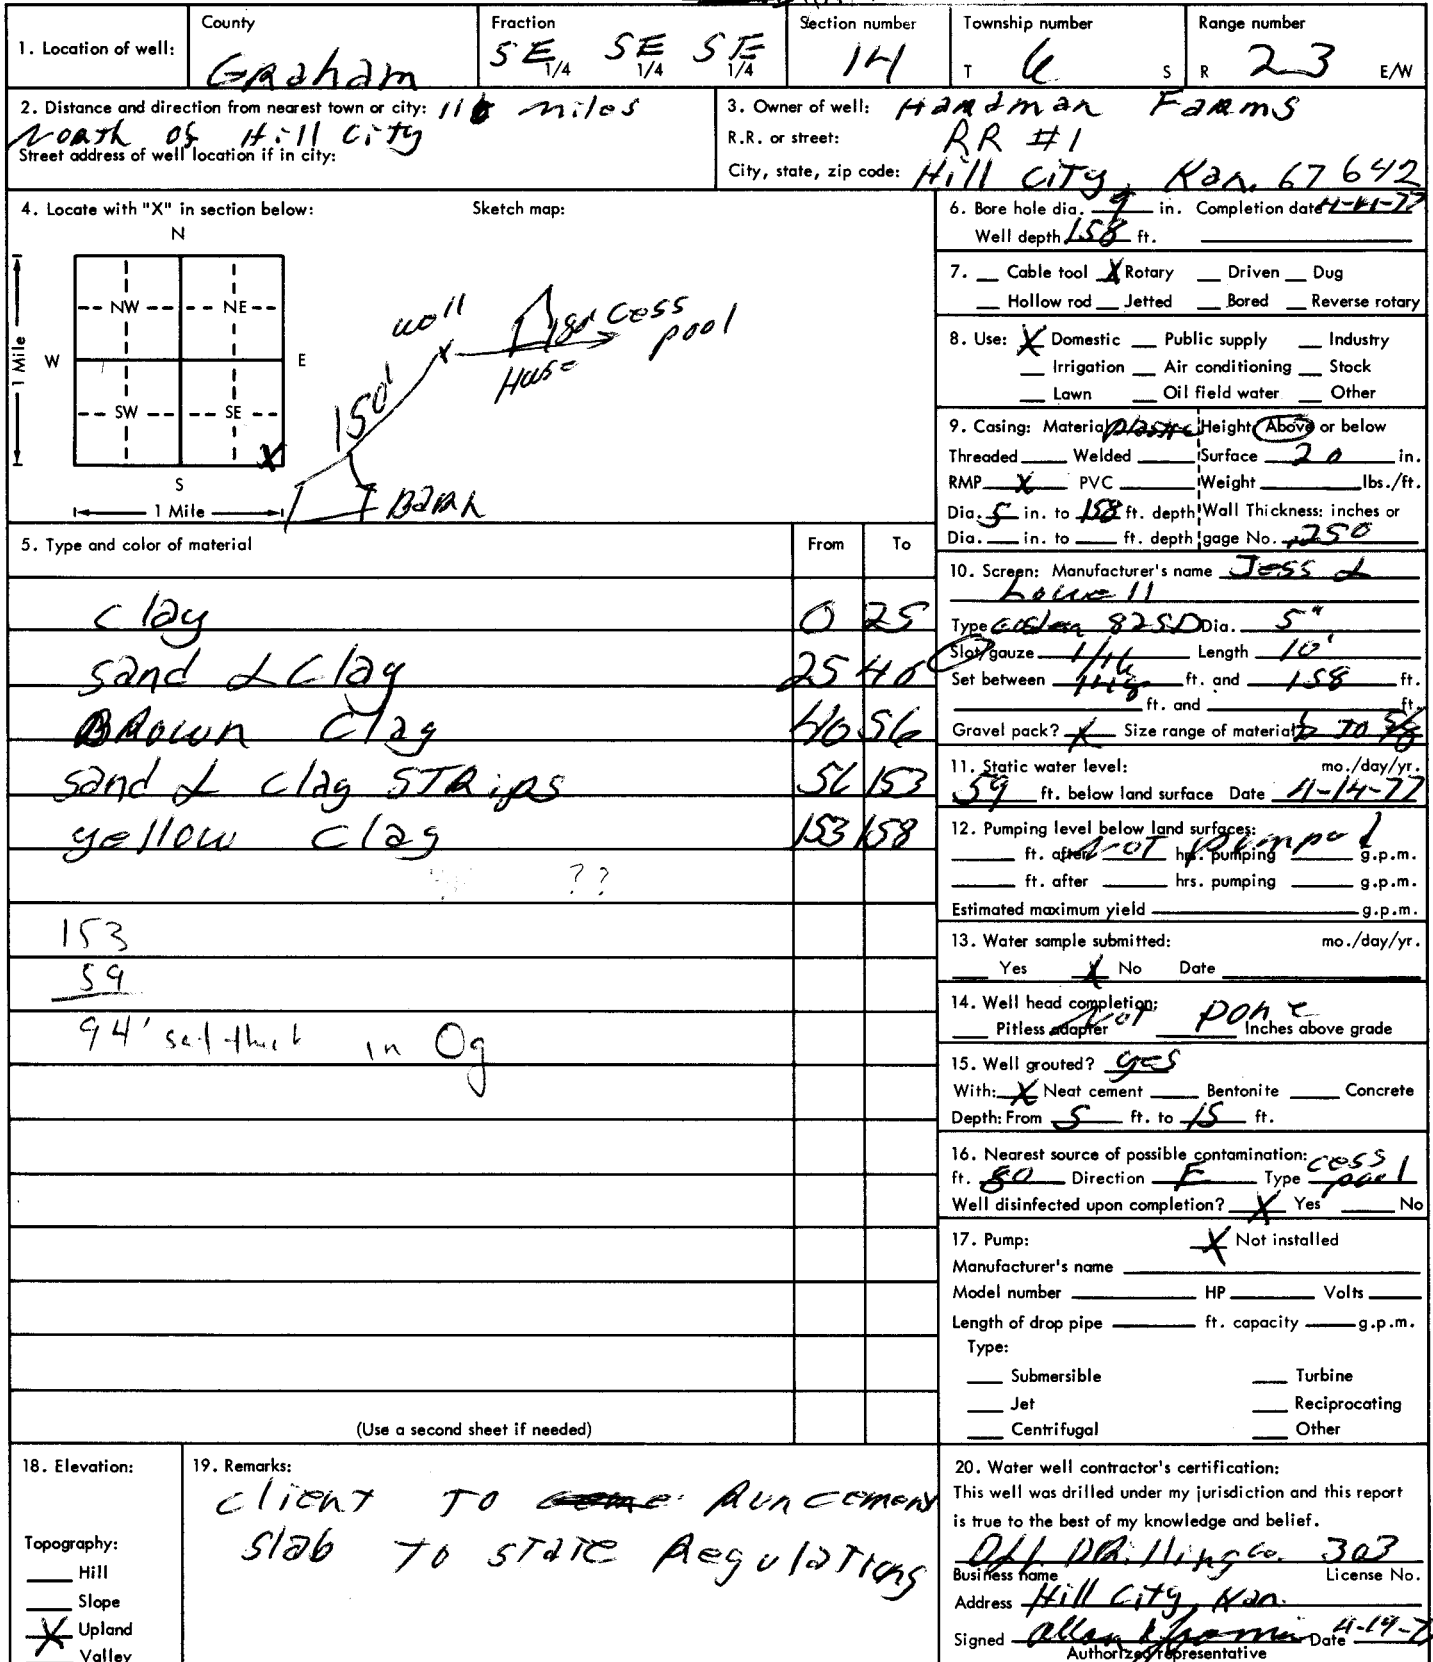 County
Fraction
Section number
Township number
Range number
1. Location of well:
Graham
SE 1/4 SE 1/4 SE 1/4
14
T 6 S
R 23 E/W
2. Distance and direction from nearest town or city: 11 miles
North of Hill City
Street address of well location if in city:
3. Owner of well: Hardman Farms
R.R. or street: RR #1
City, state, zip code: Hill City, Kan. 67642
4. Locate with "X" in section below:
Sketch map:
N
NW NE
W E
SW SE
X
S
1 Mile
1 Mile
well
X
80' Cess
pool
House
150'
Barn
5. Type and color of material From To
clay 0 25
sand & Clay 25 40
Brown Clay 40 56
sand & clay STRips 56 153
yellow Clay 153 158
??
153
59
94' sat thick in Og
(Use a second sheet if needed)
6. Bore hole dia. 9 in. Completion date 4-14-77
Well depth 158 ft.
7. Cable tool X Rotary Driven Dug
Hollow rod Jetted Bored Reverse rotary
8. Use: X Domestic Public supply Industry
Irrigation Air conditioning Stock
Lawn Oil field water Other
9. Casing: Material plastic Height: Above or below
Threaded Welded Surface 20 in.
RMP X PVC Weight lbs./ft.
Dia. 5 in. to 158 ft. depth Wall Thickness: inches or
Dia. in. to ft. depth gage No. .250
10. Screen: Manufacturer's name Jess &
Lowell
Type 82SD Dia. 5"
Slot/gauze 1/16 Length 10'
Set between 148 ft. and 158 ft.
ft. and ft.
Gravel pack? X Size range of material to 5/8
11. Static water level: mo./day/yr.
59 ft. below land surface Date 4-14-77
12. Pumping level below land surfaces:
Not pumped
ft. after hrs. pumping g.p.m.
ft. after hrs. pumping g.p.m.
Estimated maximum yield g.p.m.
13. Water sample submitted: mo./day/yr.
Yes X No Date
14. Well head completion:
Not Done
Pitless adapter Inches above grade
15. Well grouted? yes
With: X Neat cement Bentonite Concrete
Depth: From 5 ft. to 15 ft.
16. Nearest source of possible contamination:
ft. 80 Direction E Type cess pool
Well disinfected upon completion? X Yes No
17. Pump: X Not installed
Manufacturer's name
Model number HP Volts
Length of drop pipe ft. capacity g.p.m.
Type:
Submersible Turbine
Jet Reciprocating
Centrifugal Other
18. Elevation:
Topography:
Hill
Slope
X Upland
Valley
19. Remarks:
client TO Run cement
slab To STATE Regulations
20. Water well contractor's certification:
This well was drilled under my jurisdiction and this report
is true to the best of my knowledge and belief.
DRilling co. 303
Business name License No.
Address Hill City, Kan.
Signed Date 4-19-7
Authorized representative